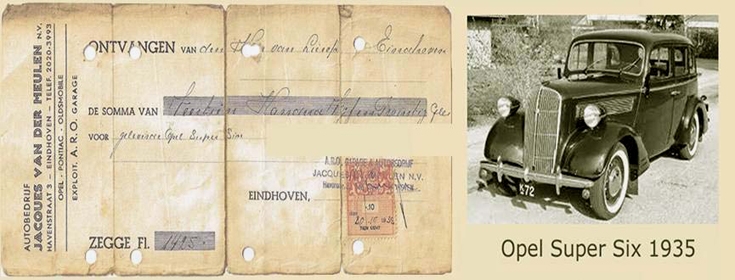 AUTOBEDRIJF
JACQUES VAN DER MEULEN N.V.
HAVENSTRAAT 3 — EINDHOVEN — TELEF. 2020-3993
OPEL - PONTIAC - OLDSMOBILE
EXPLOIT. A.R.O. GARAGE
ONTVANGEN VAN den Hr. van Eindhoven
DE SOMMA VAN
VOOR geleverde Opel Super Six
A.R.O. GARAGE & AUTOBEDRIJF
JACQUES N.V.
EINDHOVEN,
ZEGGE Fl. 1495.-
K 72
Opel Super Six 1935